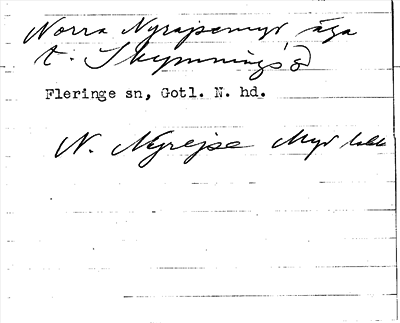 Norra Nyrajsemyr äga
t. Skymnings
Fleringe sn, Gotl. N. hd.
N. Nyrejse Myr